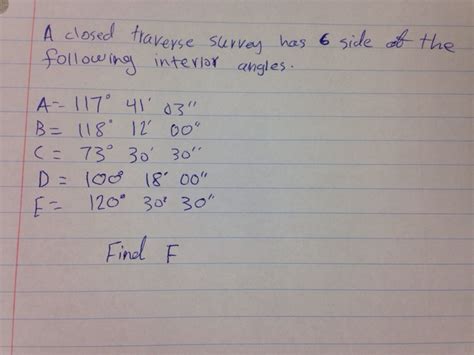 A closed traverse survey has 6 side of the
following interior angles.
A = 117° 41' 03"
B = 118° 12' 00"
C = 73° 30' 30"
D = 100° 18' 00"
E = 120° 30' 30"
Find F